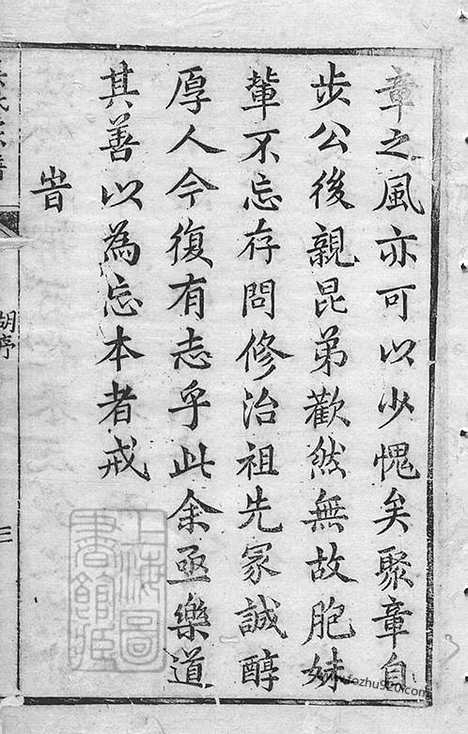 章之風亦可以少愧矣聚章自
步公後親昆弟歡然無故胞妹
輩不忘存問修治祖先冢誠醇
厚人今復有志乎此余亟樂道
其善以為忘本者戒
旹
氏宗譜
胡序
三
上海圖
書館藏
fozhu920.com